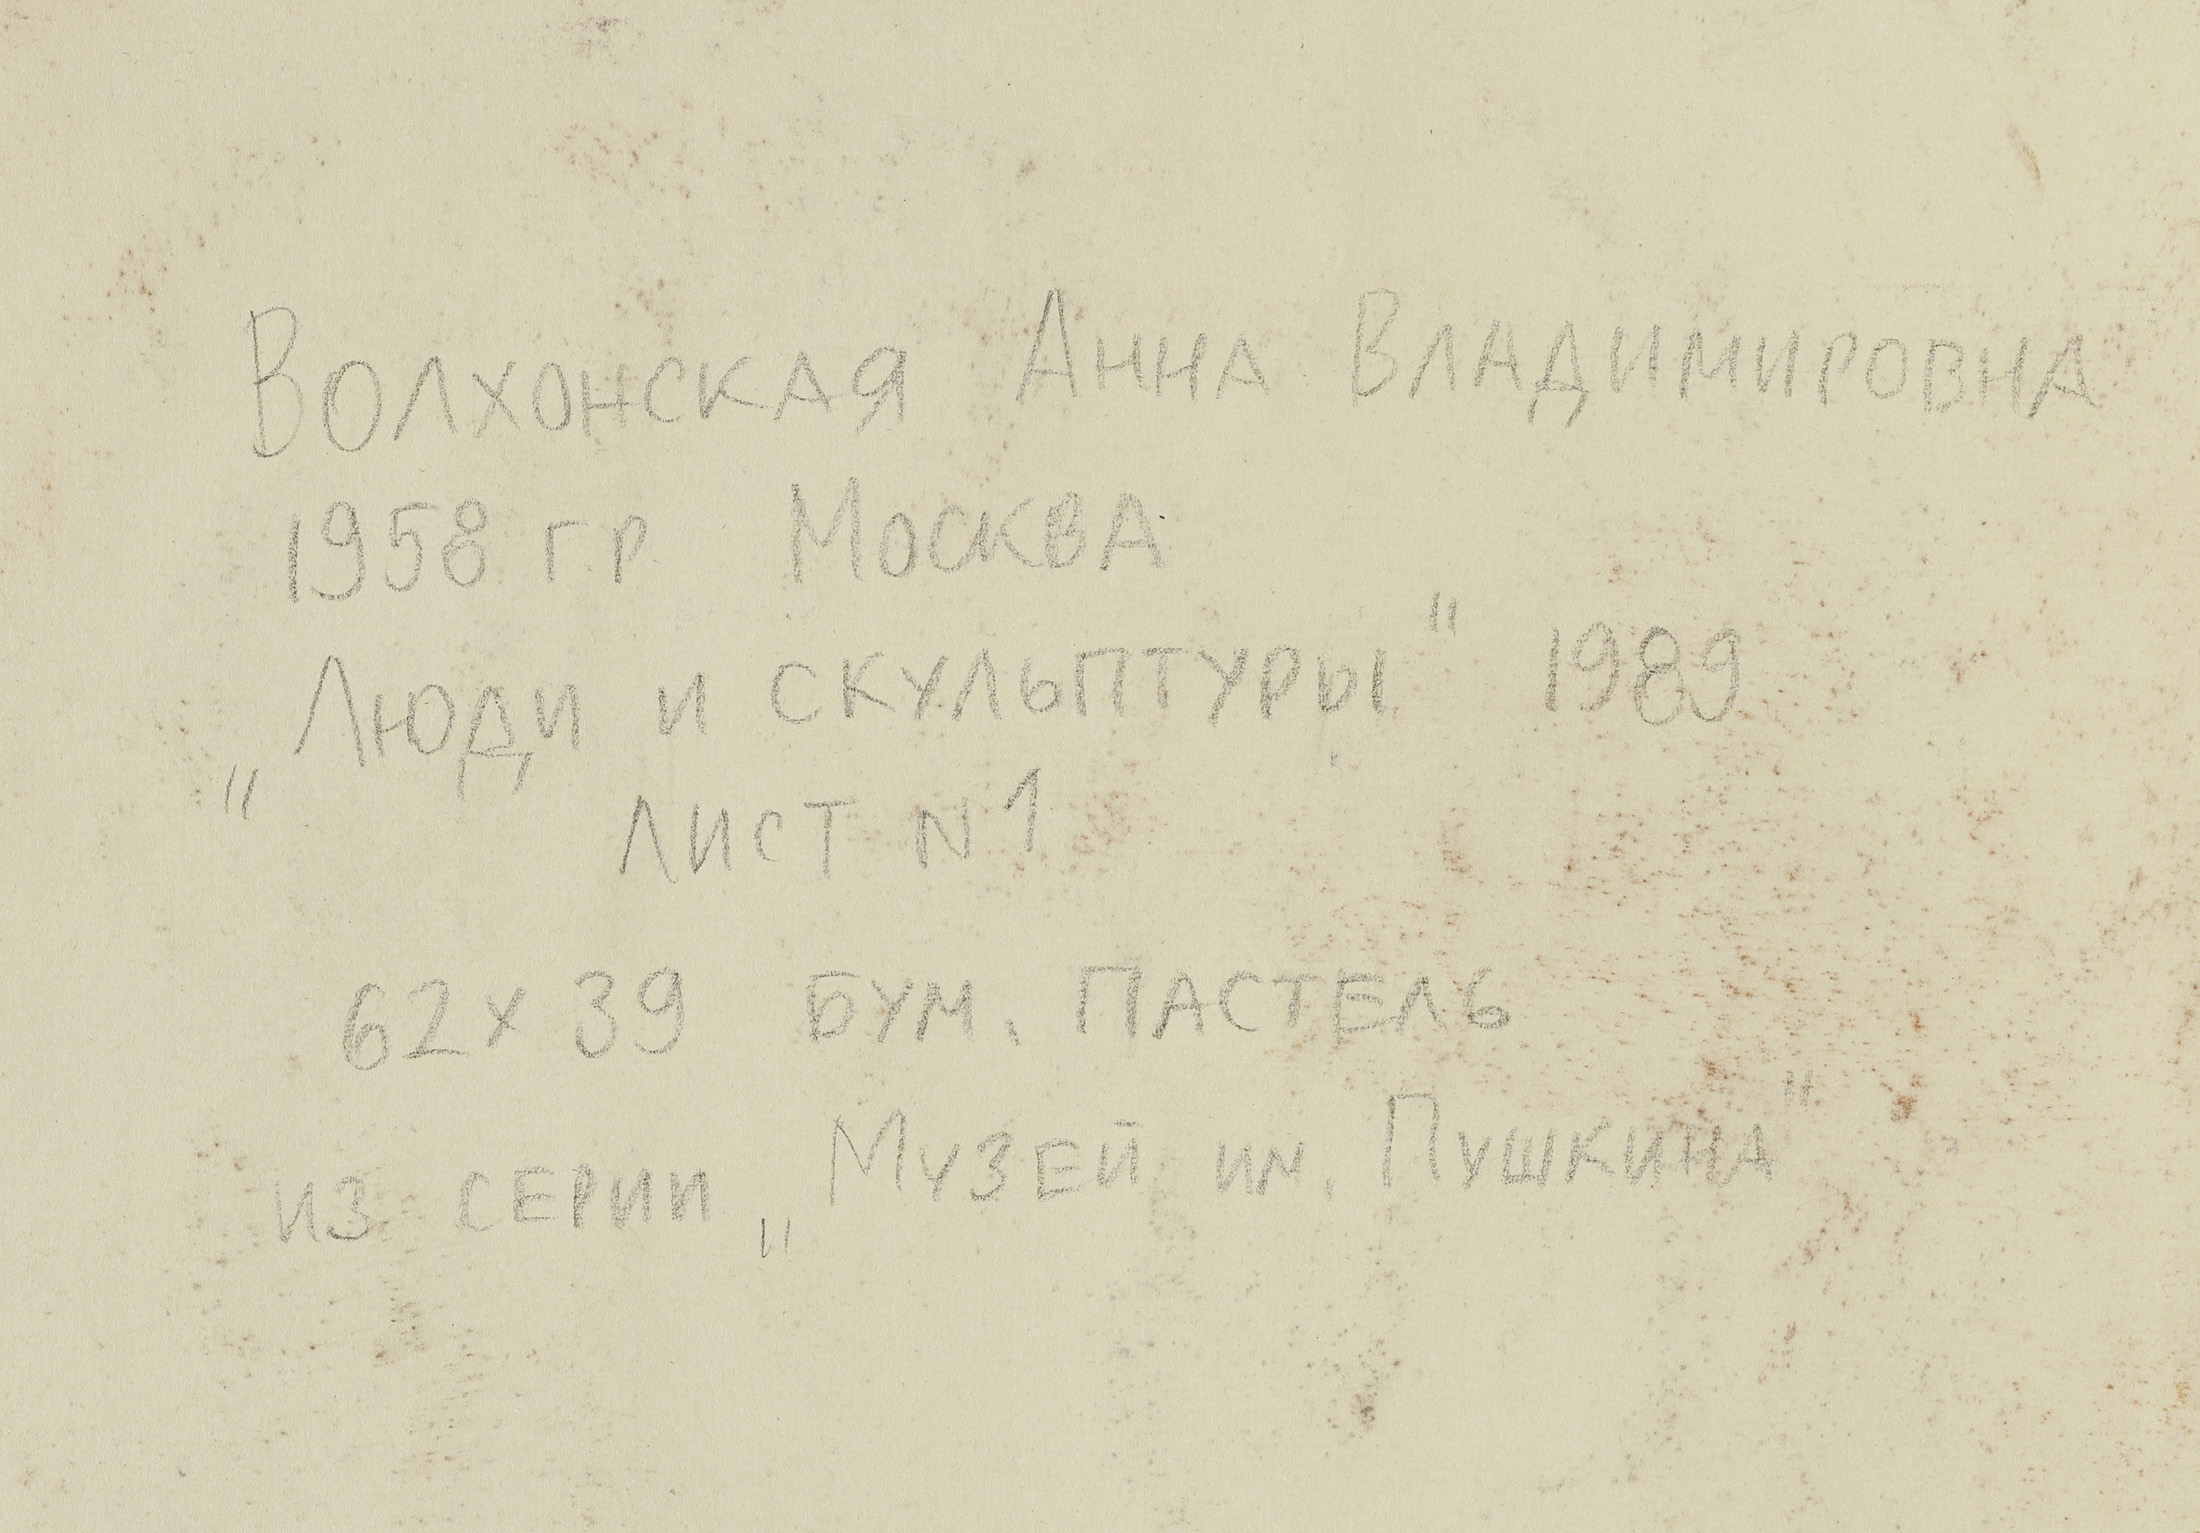 Волхонская Анна Владимировна
1958 гр Москва
„Люди и скульптуры" 1989
лист N1
62х39 бум. пастель
из серии „Музей им. Пушкина"